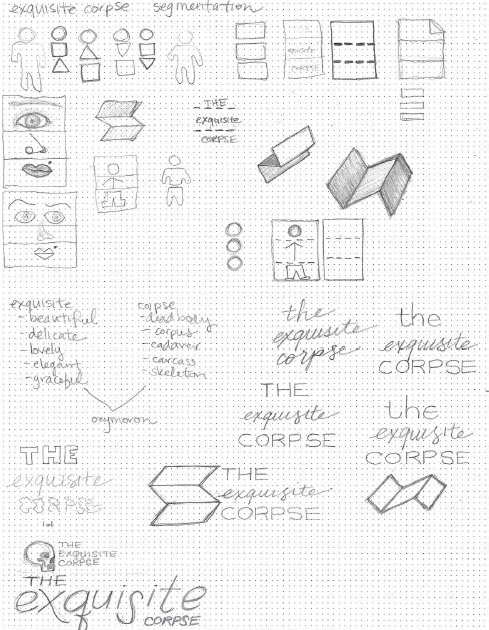 exquisite corpse segmentation
exquisite
CORPSE
THE
exquisite
CORPSE
exquisite
- beautiful
- delicate
- lovely
- elegant
- graceful
corpse
- dead body
- corpus
- cadaver
- carcass
- skeleton
oxymoron
the
exquisite
corpse
the
exquisite
CORPSE
THE
exquisite
CORPSE
the
exquisite
CORPSE
THE
exquisite
CORPSE
lol
THE
exquisite
CORPSE
THE
EXQUISITE
CORPSE
THE
exquisite
CORPSE